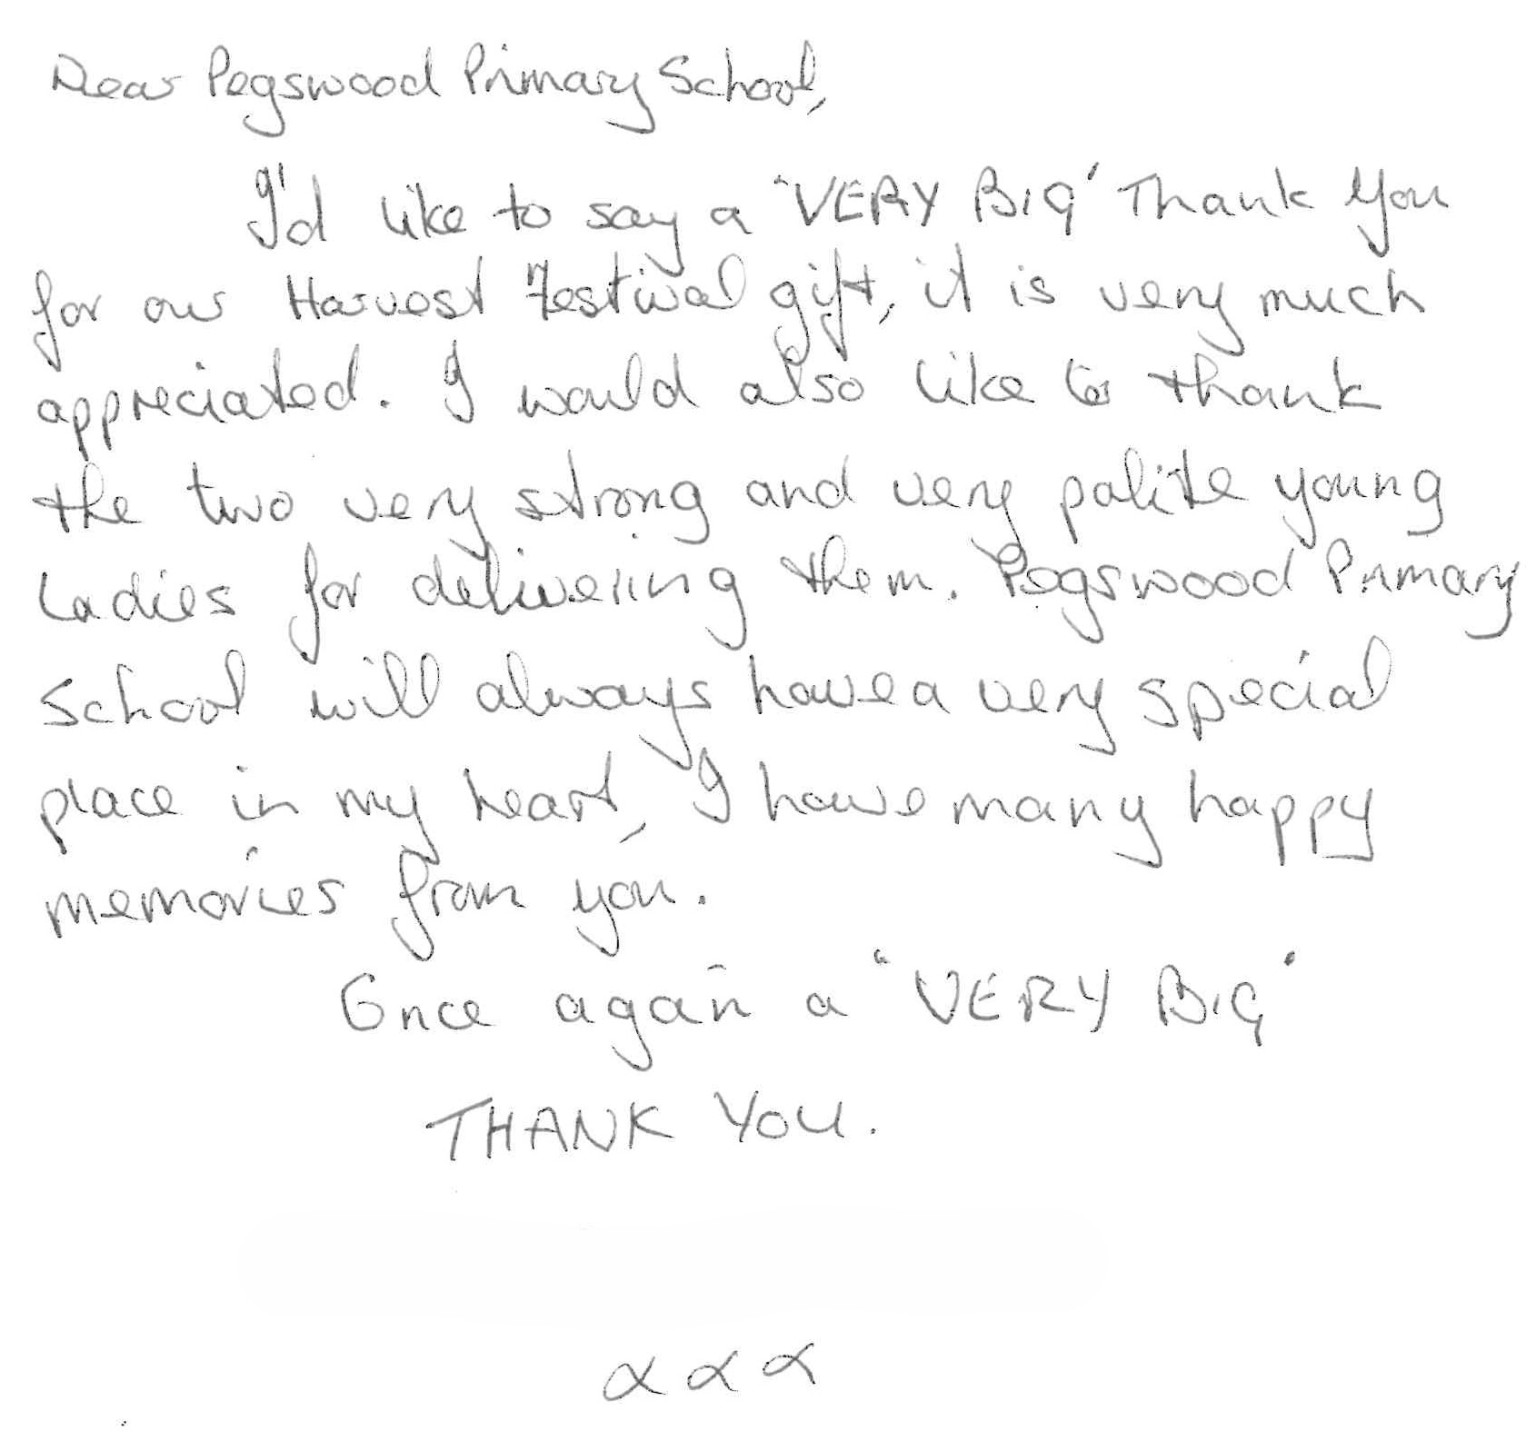 Dear Pegswood Primary School,
I'd like to say a "VERY BIG" Thank You
for our Harvest Festival gift, it is very much
appreciated. I would also like to thank
the two very strong and very polite young
Ladies for delivering them. Pegswood Primary
School will always have a very special
place in my heart, I have many happy
memories from you.
Once again a "VERY BIG"
THANK YOU.
x x x